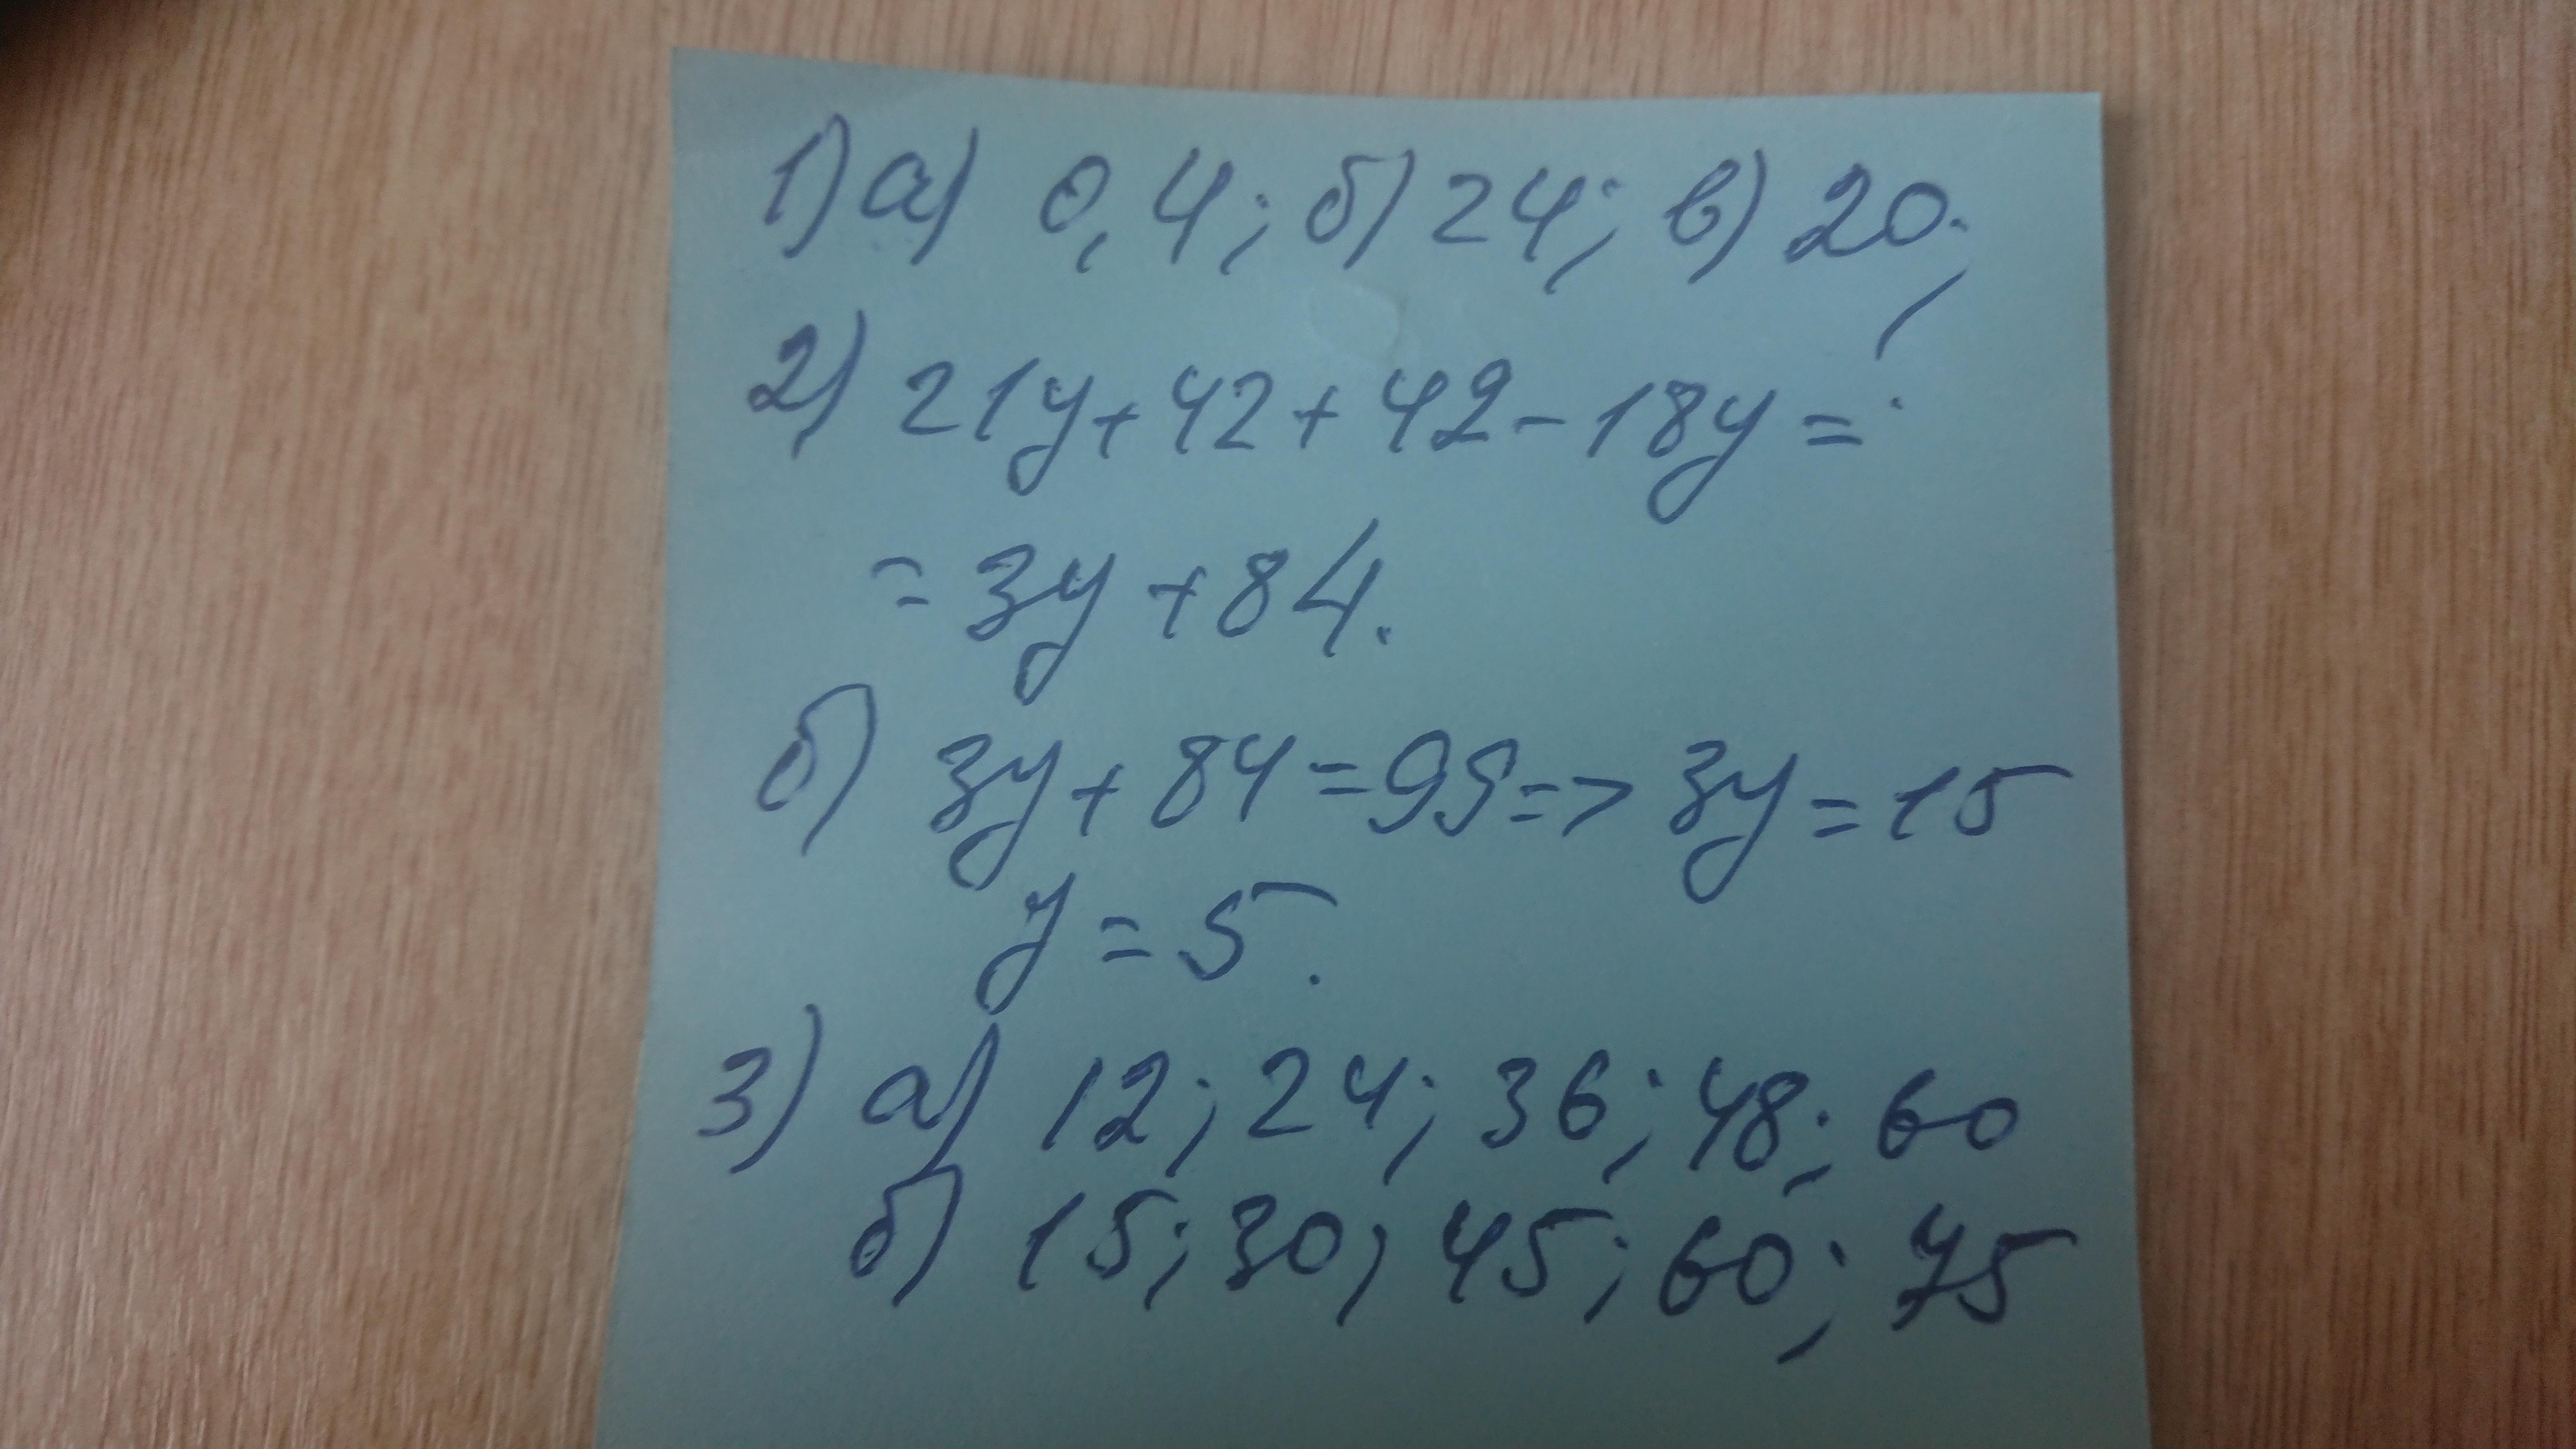 1) а) 0,4; б) 24; в) 20;
2) 21y + 42 + 42 - 18y =
= 3y + 84.
б) 3y + 84 = 99 => 3y = 15
y = 5.
3) а) 12; 24; 36; 48; 60
б) 15; 30; 45; 60; 75